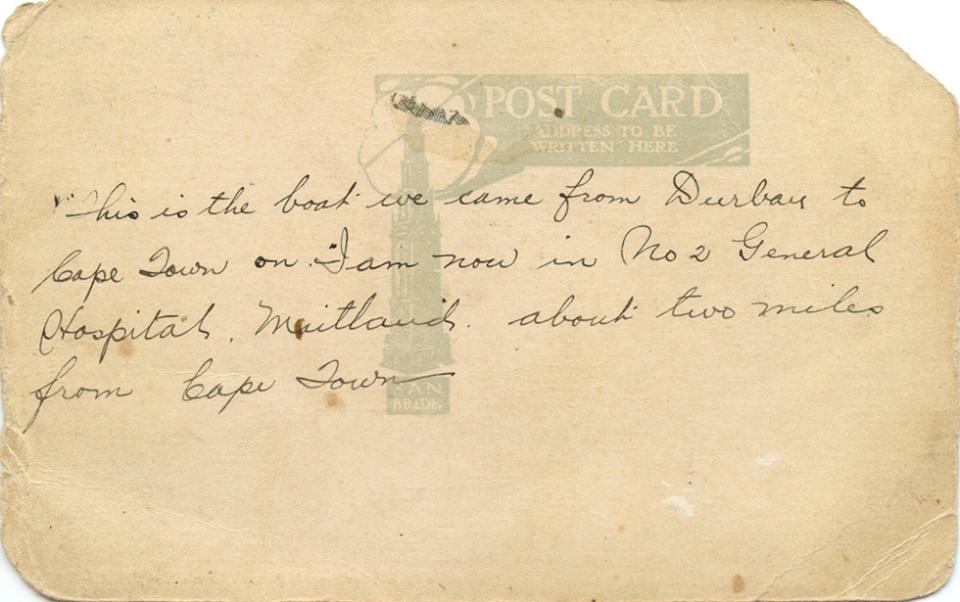 POST CARD
ADDRESS TO BE
WRITTEN HERE
"This is the boat we came from Durban to
Cape Town on." I am now in No 2 General
Hospital, Maitland. about two miles
from Cape Town